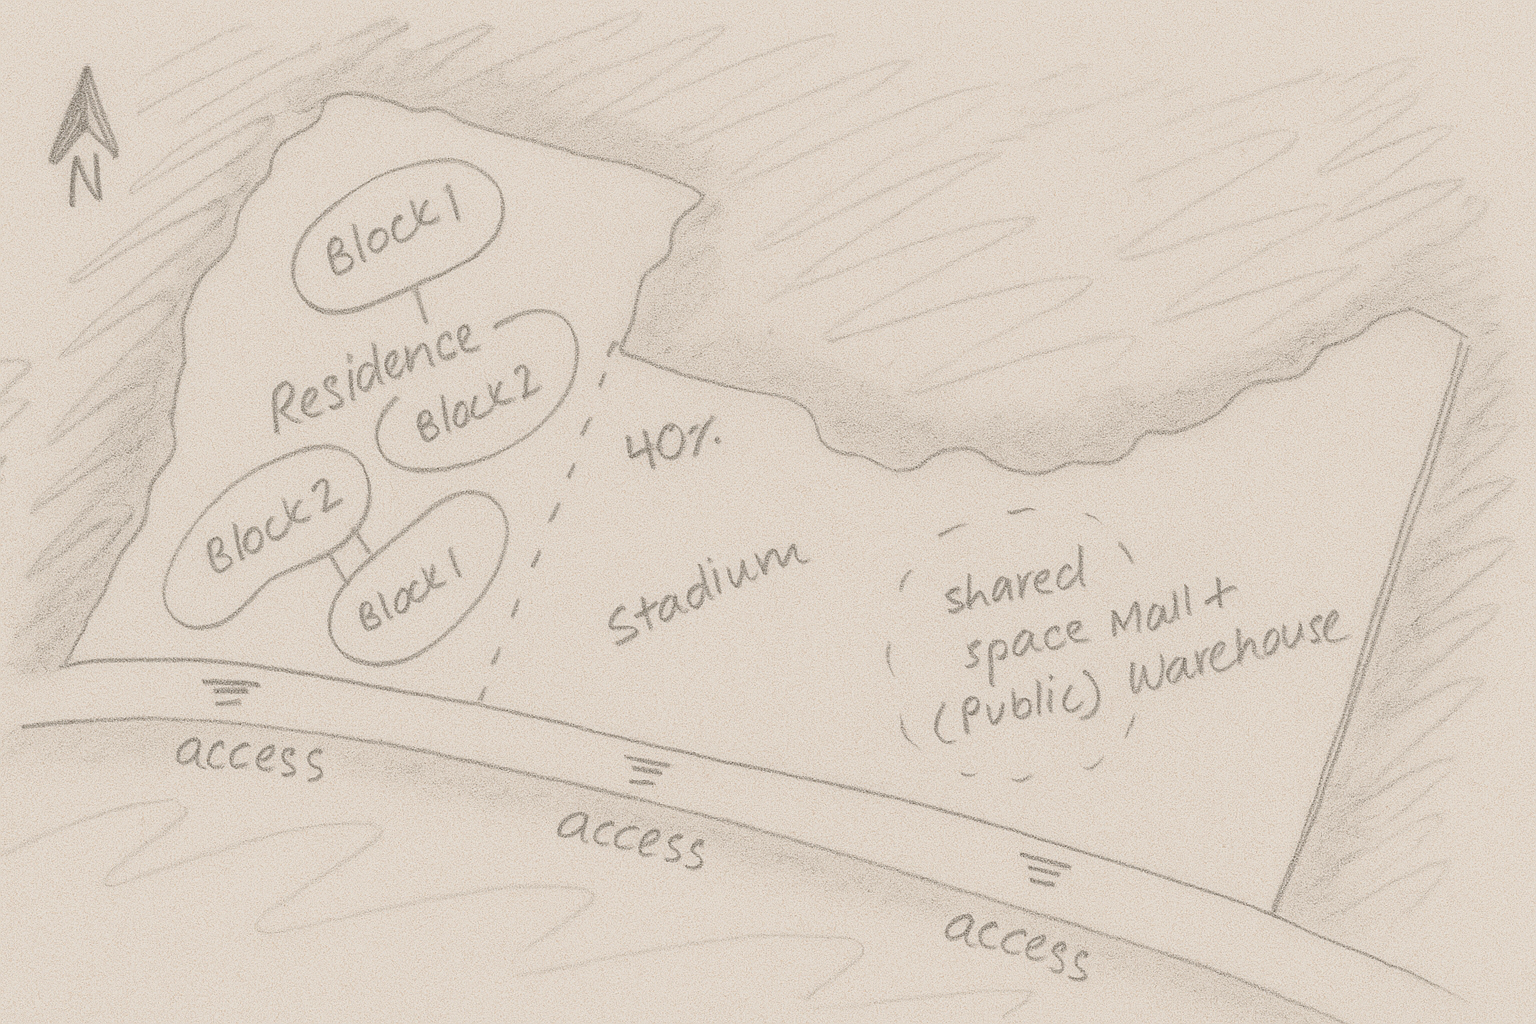 N
Block 1
Residence
Block 2
Block 2
Block 1
40%
Stadium
shared
space Mall +
(Public) Warehouse
access
access
access